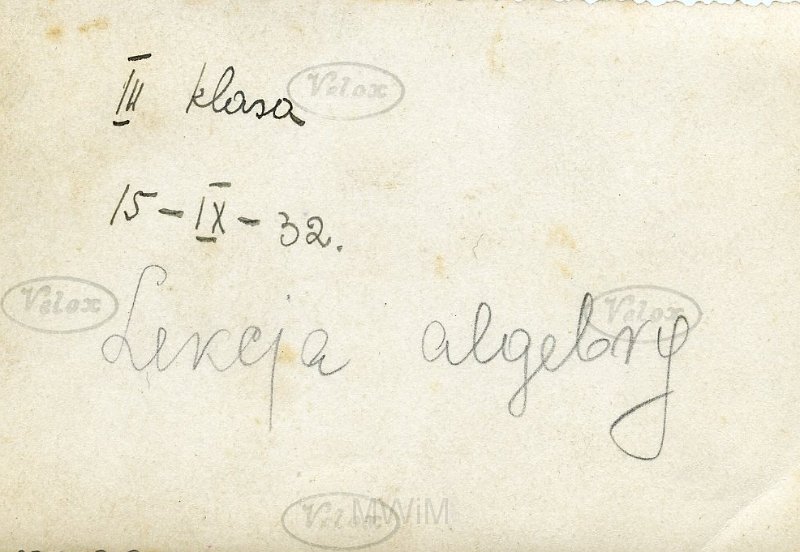 III klasa
Velox
15-IX-32.
Velox
Velox
Lekcja algebry
Velox
MWiM